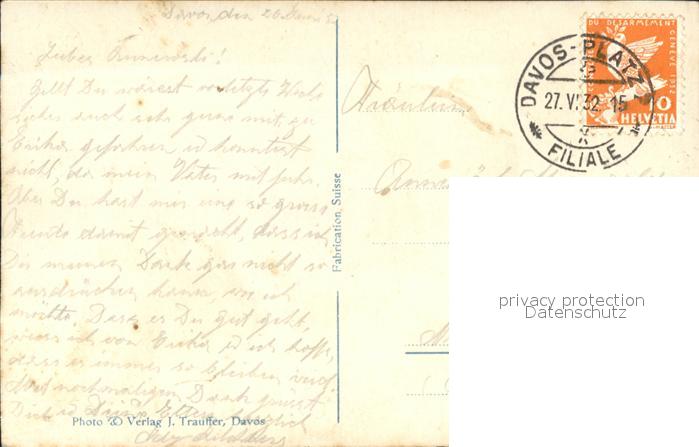 Davos den 26. Juni 32
Lieber
Gell Du wärest letzte Woche
sicher auch sehr gerne mit zu
Erika gefahren u konntest
nicht, da mein Vater mit fuhr.
Aber Du hast mir eine so grosse
Freude damit gemacht, dass ich
Dir meinen Dank gar nicht so
ausdrücken kann, wie ich
möchte. Dass es Dir gut geht,
weiss ich von Erika u ich hoffe,
dass es immer so bleiben wird.
Mit nochmaligem Dank grüsst
Dich u Deine Eltern herzlich
Photo & Verlag J. Trauffer, Davos
Fabrication Suisse
CONFERENCE DU DESARMEMENT GENEVE 1932
10
HELVETIA
DAVOS-PLATZ
27.VI.32-15
FILIALE
Fräulein
privacy protection
Datenschutz